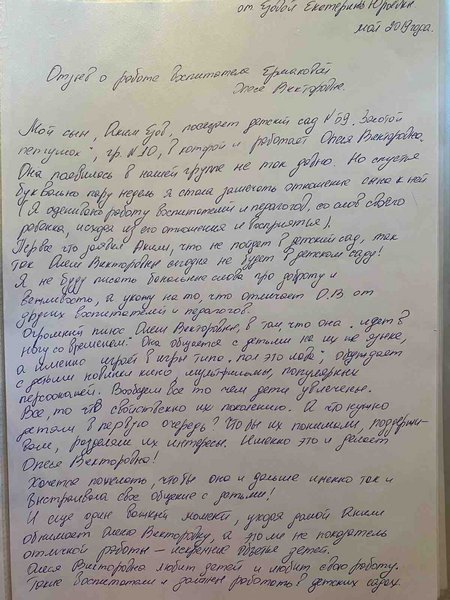 от Езовой Екатерины Юрьевны
май 2019 года.
Отзыв о работе воспитателя Ермаковой
Олеси Викторовны.
Мой сын, Аким Езов, посещает детский сад №69 "Золотой
петушок", гр. №10, в которой и работает Олеся Викторовна.
Она появилось в нашей группе не так давно. Но спустя
буквально пару недель я стала замечать отношение сына к ней
(Я оцениваю работу воспитателей и педагогов, со слов своего
ребенка, исходя из его отношения и восприятья).
Аким, что не пойдет в детский сад, так
как Олеси Викторовны сегодня не будет в детском саду!
Я не буду писать банальные слова про доброту и
вежливость, а укажу на то, что отличает О.В от
других воспитателей и педагогов.
Огромный плюс Олеси Викторовны, в том что она "идет в
ногу со временем". Она общается с детьми на их языке,
а именно играет в игры типа "пол это лава"; обсуждает
с детьми новинки кино мультфильмы, популярных
персонажей. Вообщем все то чем дети увлечены.
Все, то что свойственно их поколению. А что нужно
детям в первую очередь? Чтобы их понимали, поддержи-
вали, разделяли их интересы. Именно это и делает
Олеся Викторовна!
Хочется пожелать, чтобы она и дальше именно так и
выстраивала свое общение с детьми!
И еще один важный момент, уходя домой Аким
обнимает Олесю Викторовну, а это ли не показатель
отличной работы – искренние объятья детей.
Олеся Викторовна любит детей и любит свою работу.
Такие воспитатели и должны работать в детских садах.